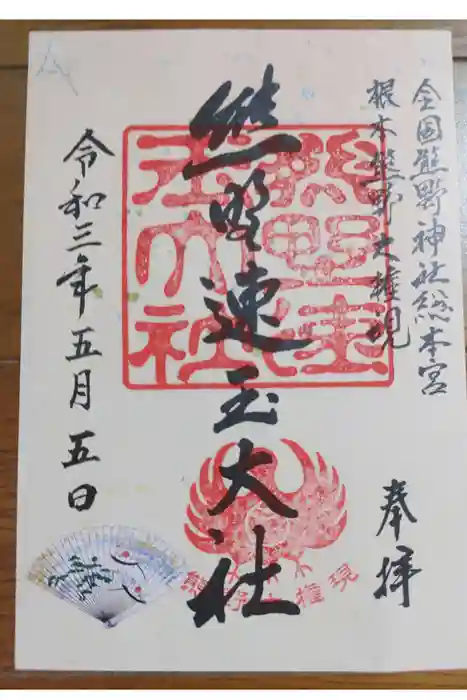 全国熊野神社総本宮
根本熊野大権現
奉拝
熊野速玉大社
熊野速玉大社
熊野大権現
令和三年五月五日